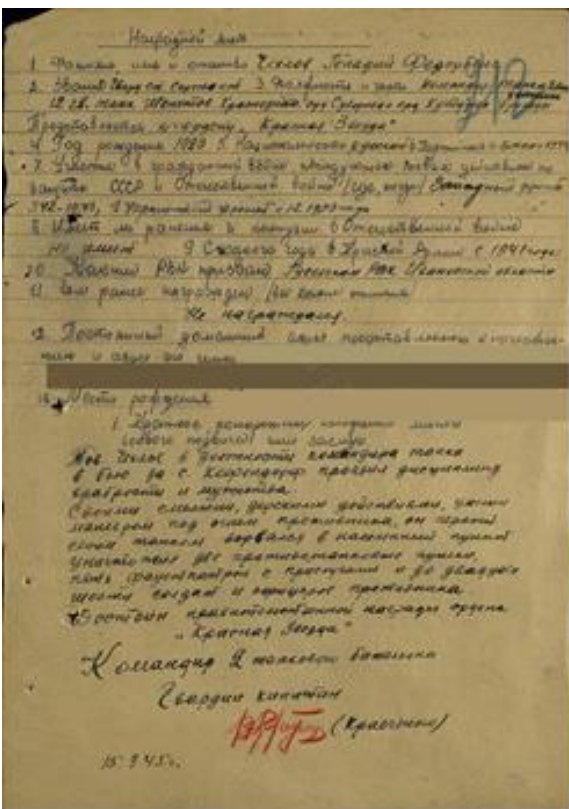 Наградной лист
1. Фамилия, имя и отчество Чехлов Геннадий Федорович
2. Звание Гвард. ст. сержант 3. Должность и часть командир танка
12 гв. танк.
Представляется к ордену "Красная Звезда"
4. Год рождения 1923 5. Национальность русский 6. Партийность
7. Участие в гражданской войне, последующих боевых действиях по
защите СССР и Отечественной войне (где, когда) Западный фронт
1942-1943, 1 Украинский фронт с 12.1943 года
8. Имеет ли ранения и контузии в Отечественной войне
не имеет 9 С какого года в Красной Армии с 1941 года
10. Каким РВК призван РВК Ивановской области
11. Чем ранее награжден (за какие отличия)
Не награждался.
12. Постоянный домашний адрес представляемого к награжде-
нию и адрес его семьи
13. Место рождения
1. Краткое конкретное изложение личного
боевого подвига или заслуг
Тов. Чехлов в должности командира танка
в бою за с. проявил дисциплину
храбрость и мужество.
Своими смелыми, дерзкими действиями, умелым
маневром под огнем противника, он первый
своим танком ворвался в населенный пункт
уничтожил две противотанковые пушки,
пять фаустпатрон с прислугами и до двадцати
шести солдат и офицеров противника
Достоин правительственной награды ордена
"Красная Звезда"
Командир 2 танкового батальона
Гвардии капитан
15.3.45г.